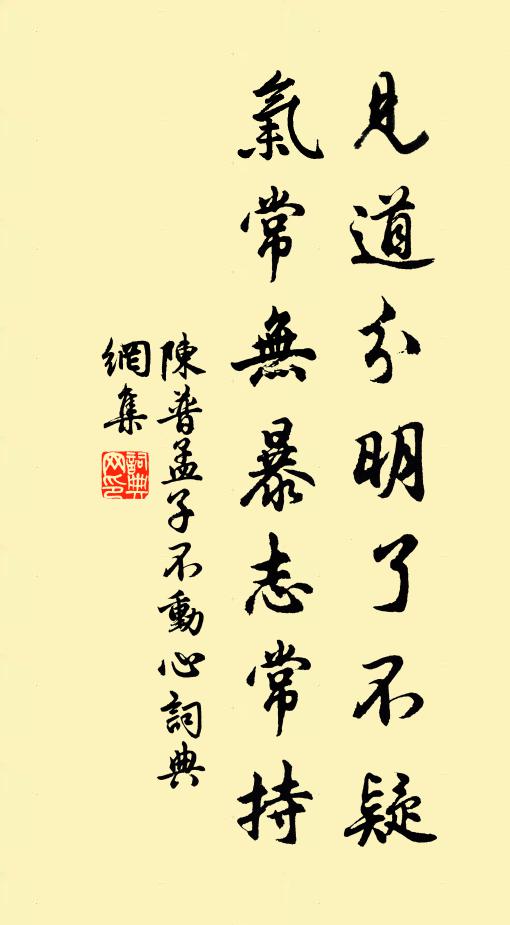 見道分明了不疑
氣常無暴志常持
陳普孟子不動心詞典
網集
詞典網印